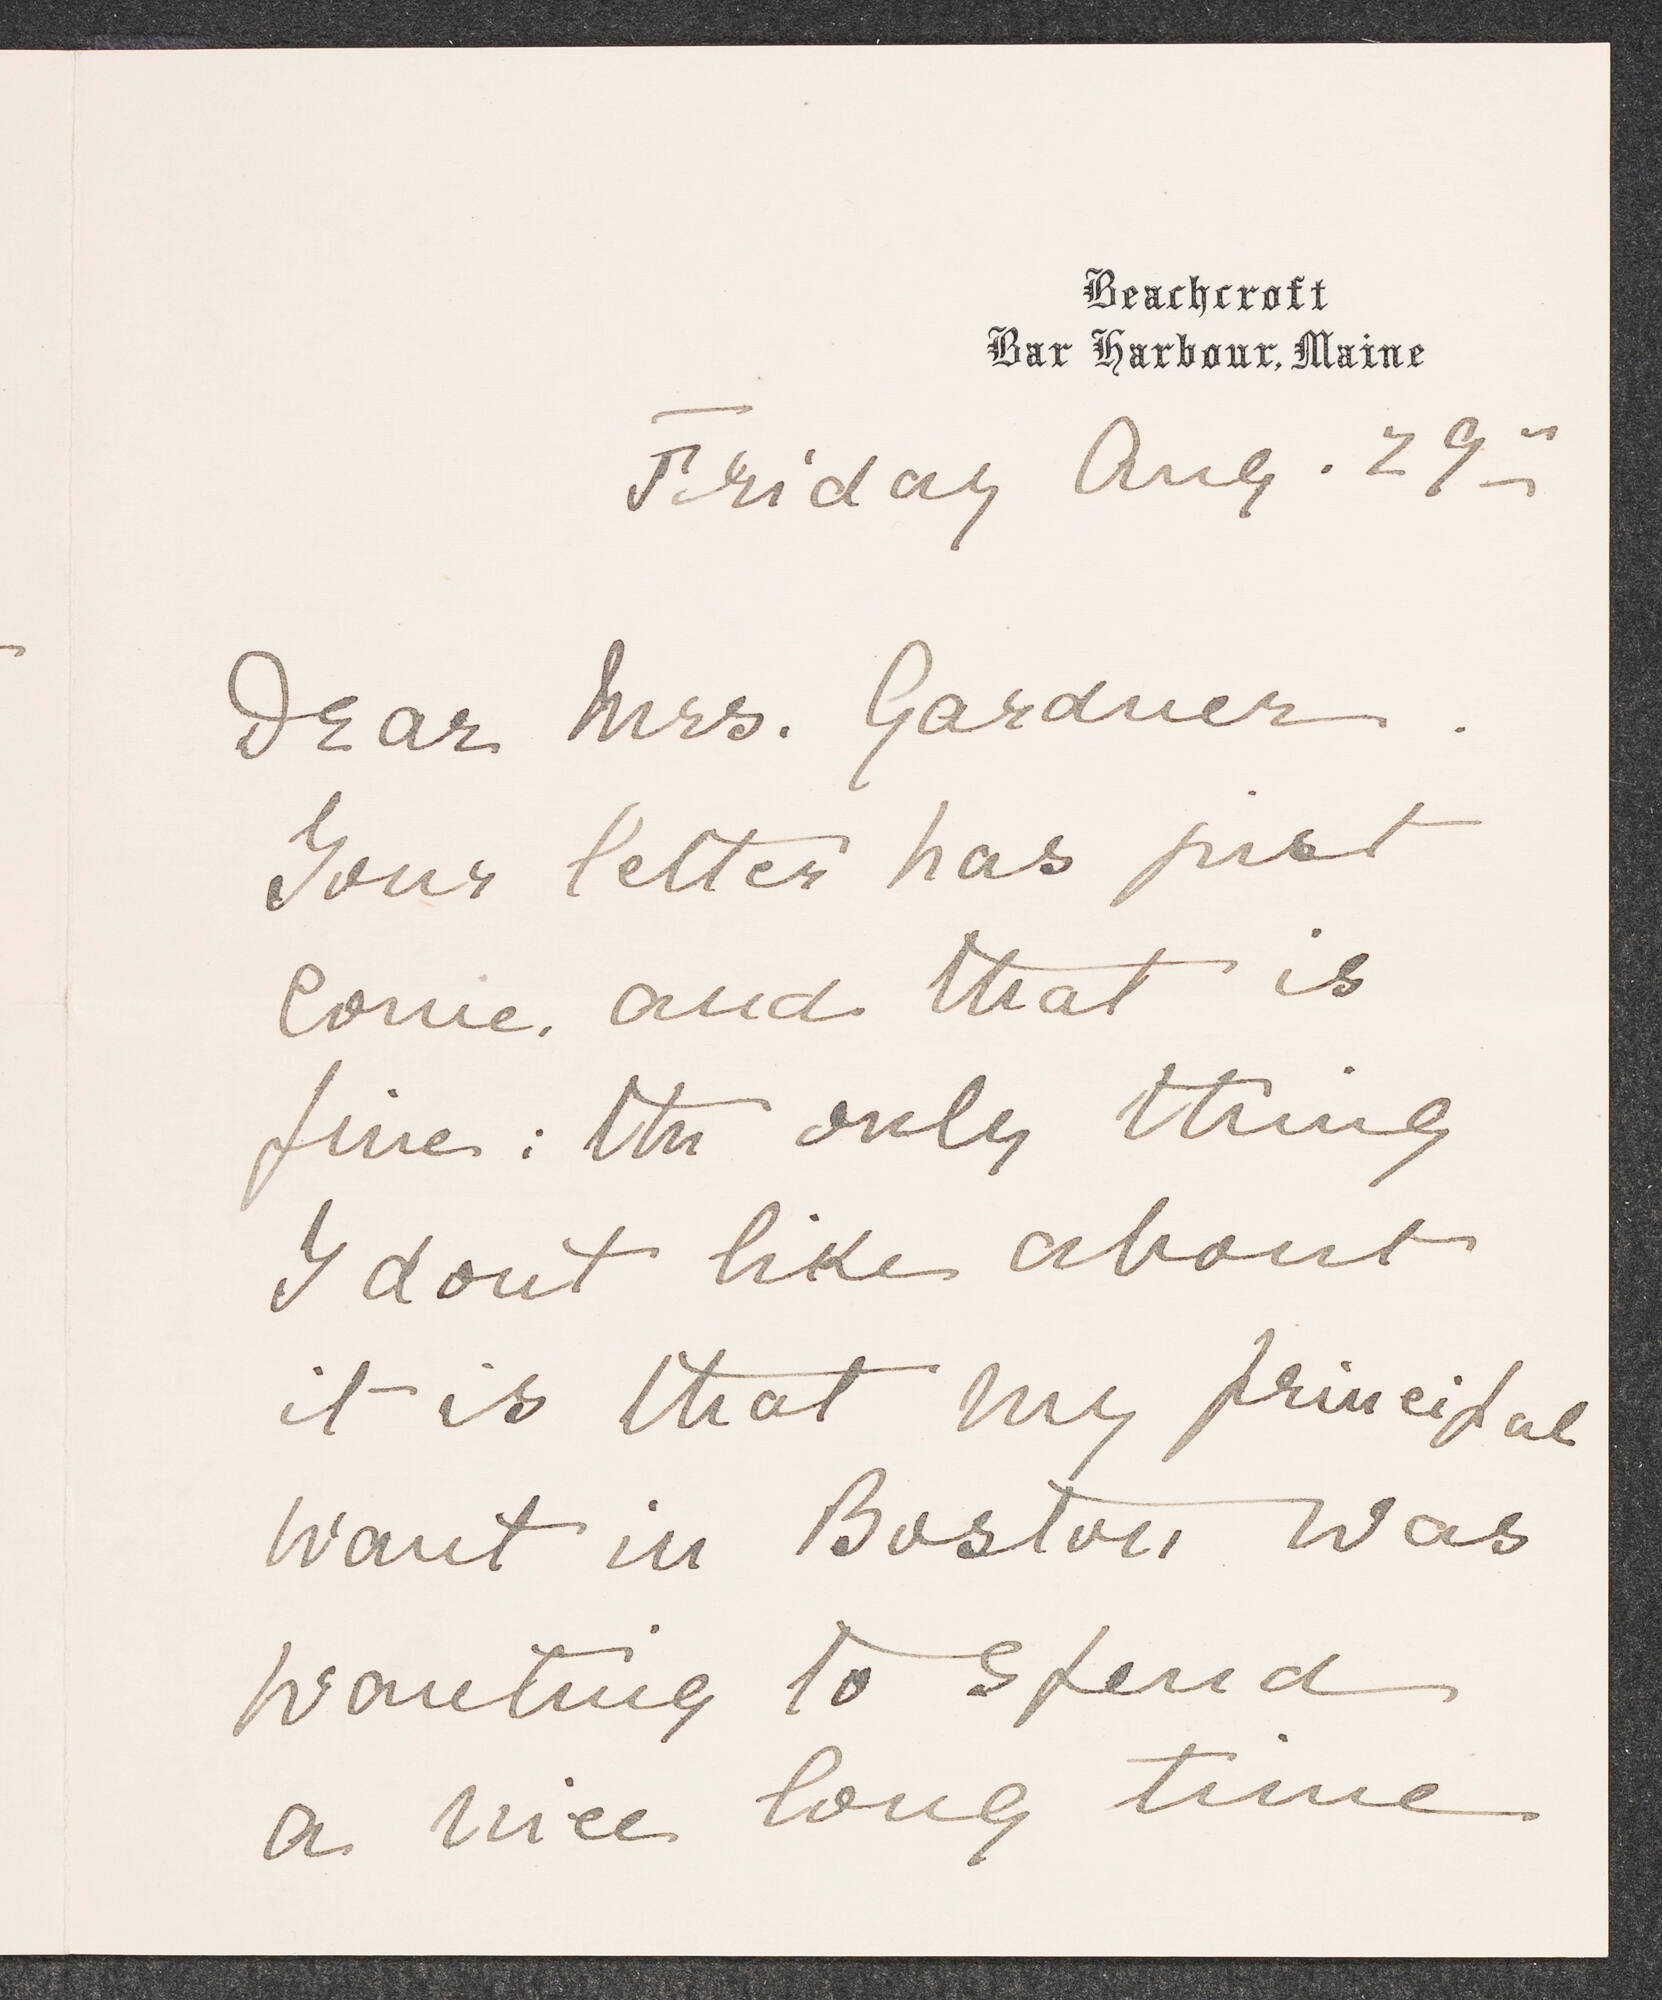 Beachcroft
Bar Harbour, Maine
Friday Aug. 29th
Dear Mrs. Gardner.
Your letter has just
come. and that is
fine: the only thing
I dont like about
it is that my principal
want in Boston was
wanting to spend
a nice long time